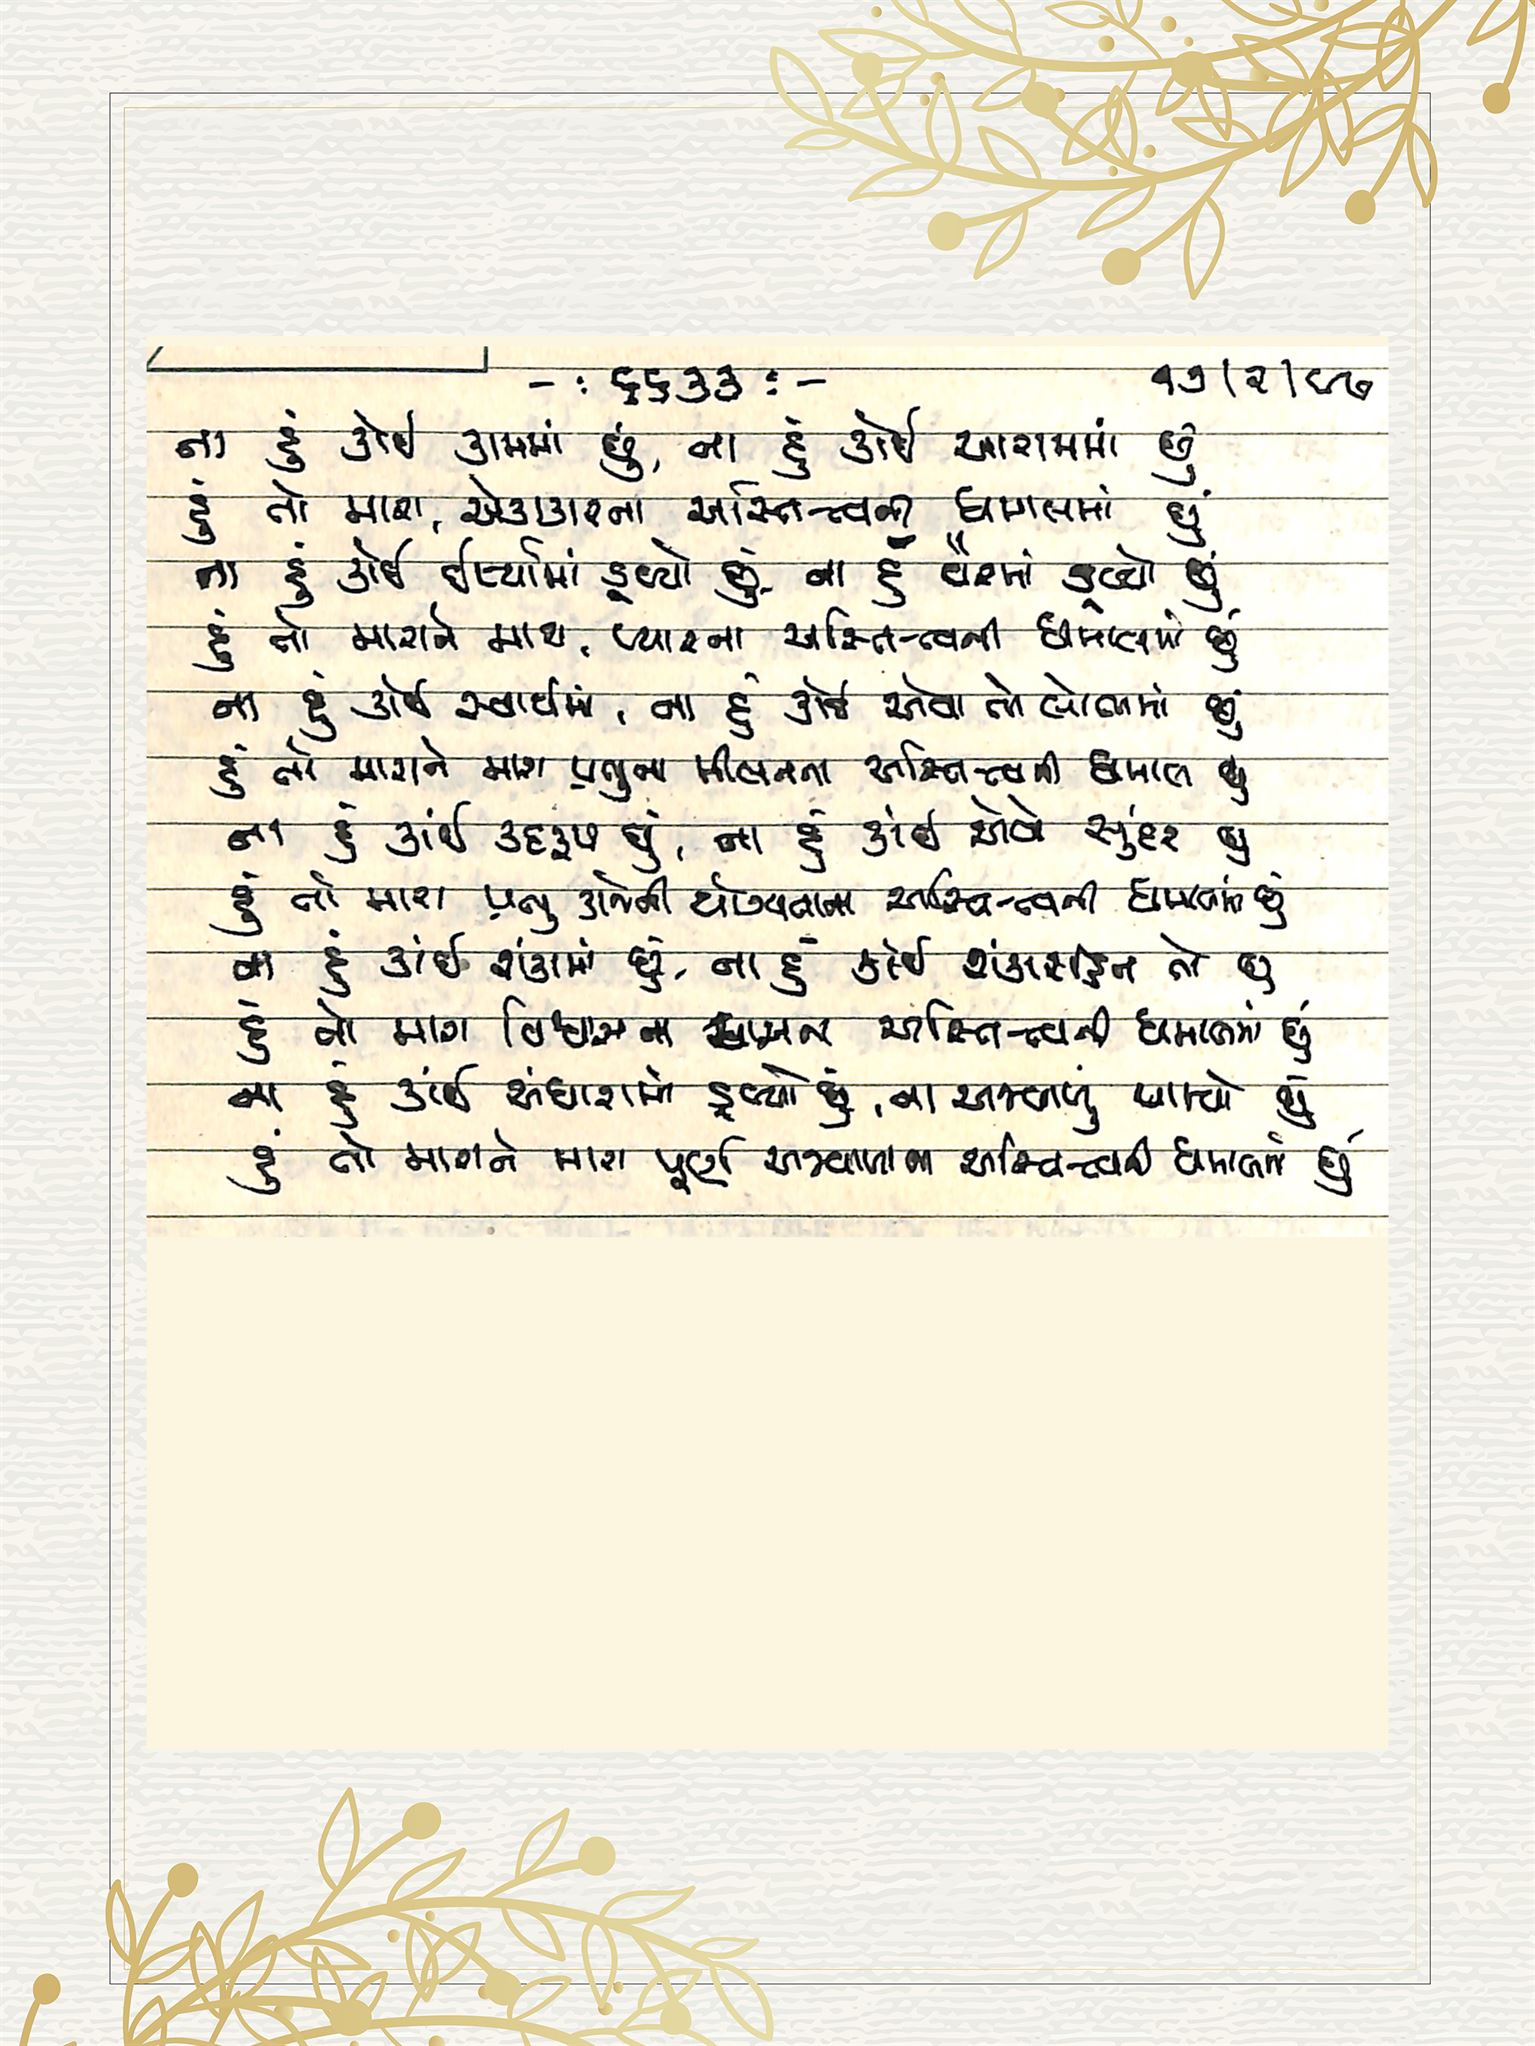 -: ૬૬૩૩ :- ૧૭/૨/૯૭
ના હું કોઈ કામમાં છું, ના હું કોઈ આરામમાં છું
હું તો મારા, એકાકારના અસ્તિત્ત્વની ધમાલમાં છું
ના હું કોઈ ઈર્ષ્યામાં ડૂબ્યો છું, ના હું વૈરમાં ડૂબ્યો છું
હું તો મારાને મારા, પ્યારના અસ્તિત્ત્વની ધમાલમાં છું
ના હું કોઈ સ્વાર્થમાં, ના હું કોઈ એવા તો લોભમાં છું
હું તો મારાને મારા પ્રભુના મીલનના અસ્તિત્ત્વની ધમાલ છું
ના હું કાંઈ કદરૂપ છું, ના હું કાંઈ એવો સુંદર છું
હું તો મારા પ્રભુ કાજેની યોગ્યતાના અસ્તિત્ત્વની ધમાલમાં છું
ના હું કાંઈ શંકામાં છું, ના હું કોઈ શંકારહિત તો છું
હું તો મારા વિશ્વાસના અસ્તિત્ત્વની ધમાલમાં છું
ના હું કાંઈ અંધારામાં ડૂબ્યો છું, ના અજવાળું પામ્યો છું
હું તો મારાને મારા પૂર્ણ અજવાળાના અસ્તિત્ત્વની ધમાલમાં છું